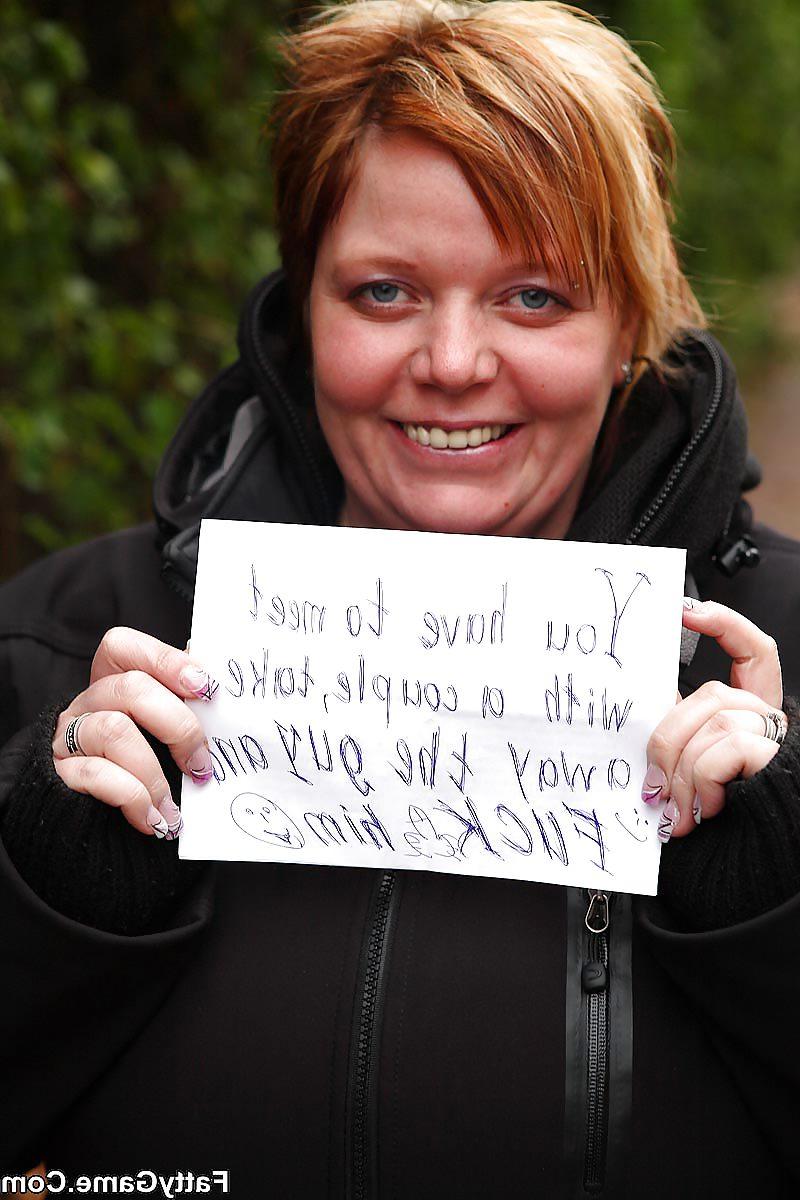 You have to meet
with a couple, take
away the guy and
:) FUCK him :)
FattyGame.Com